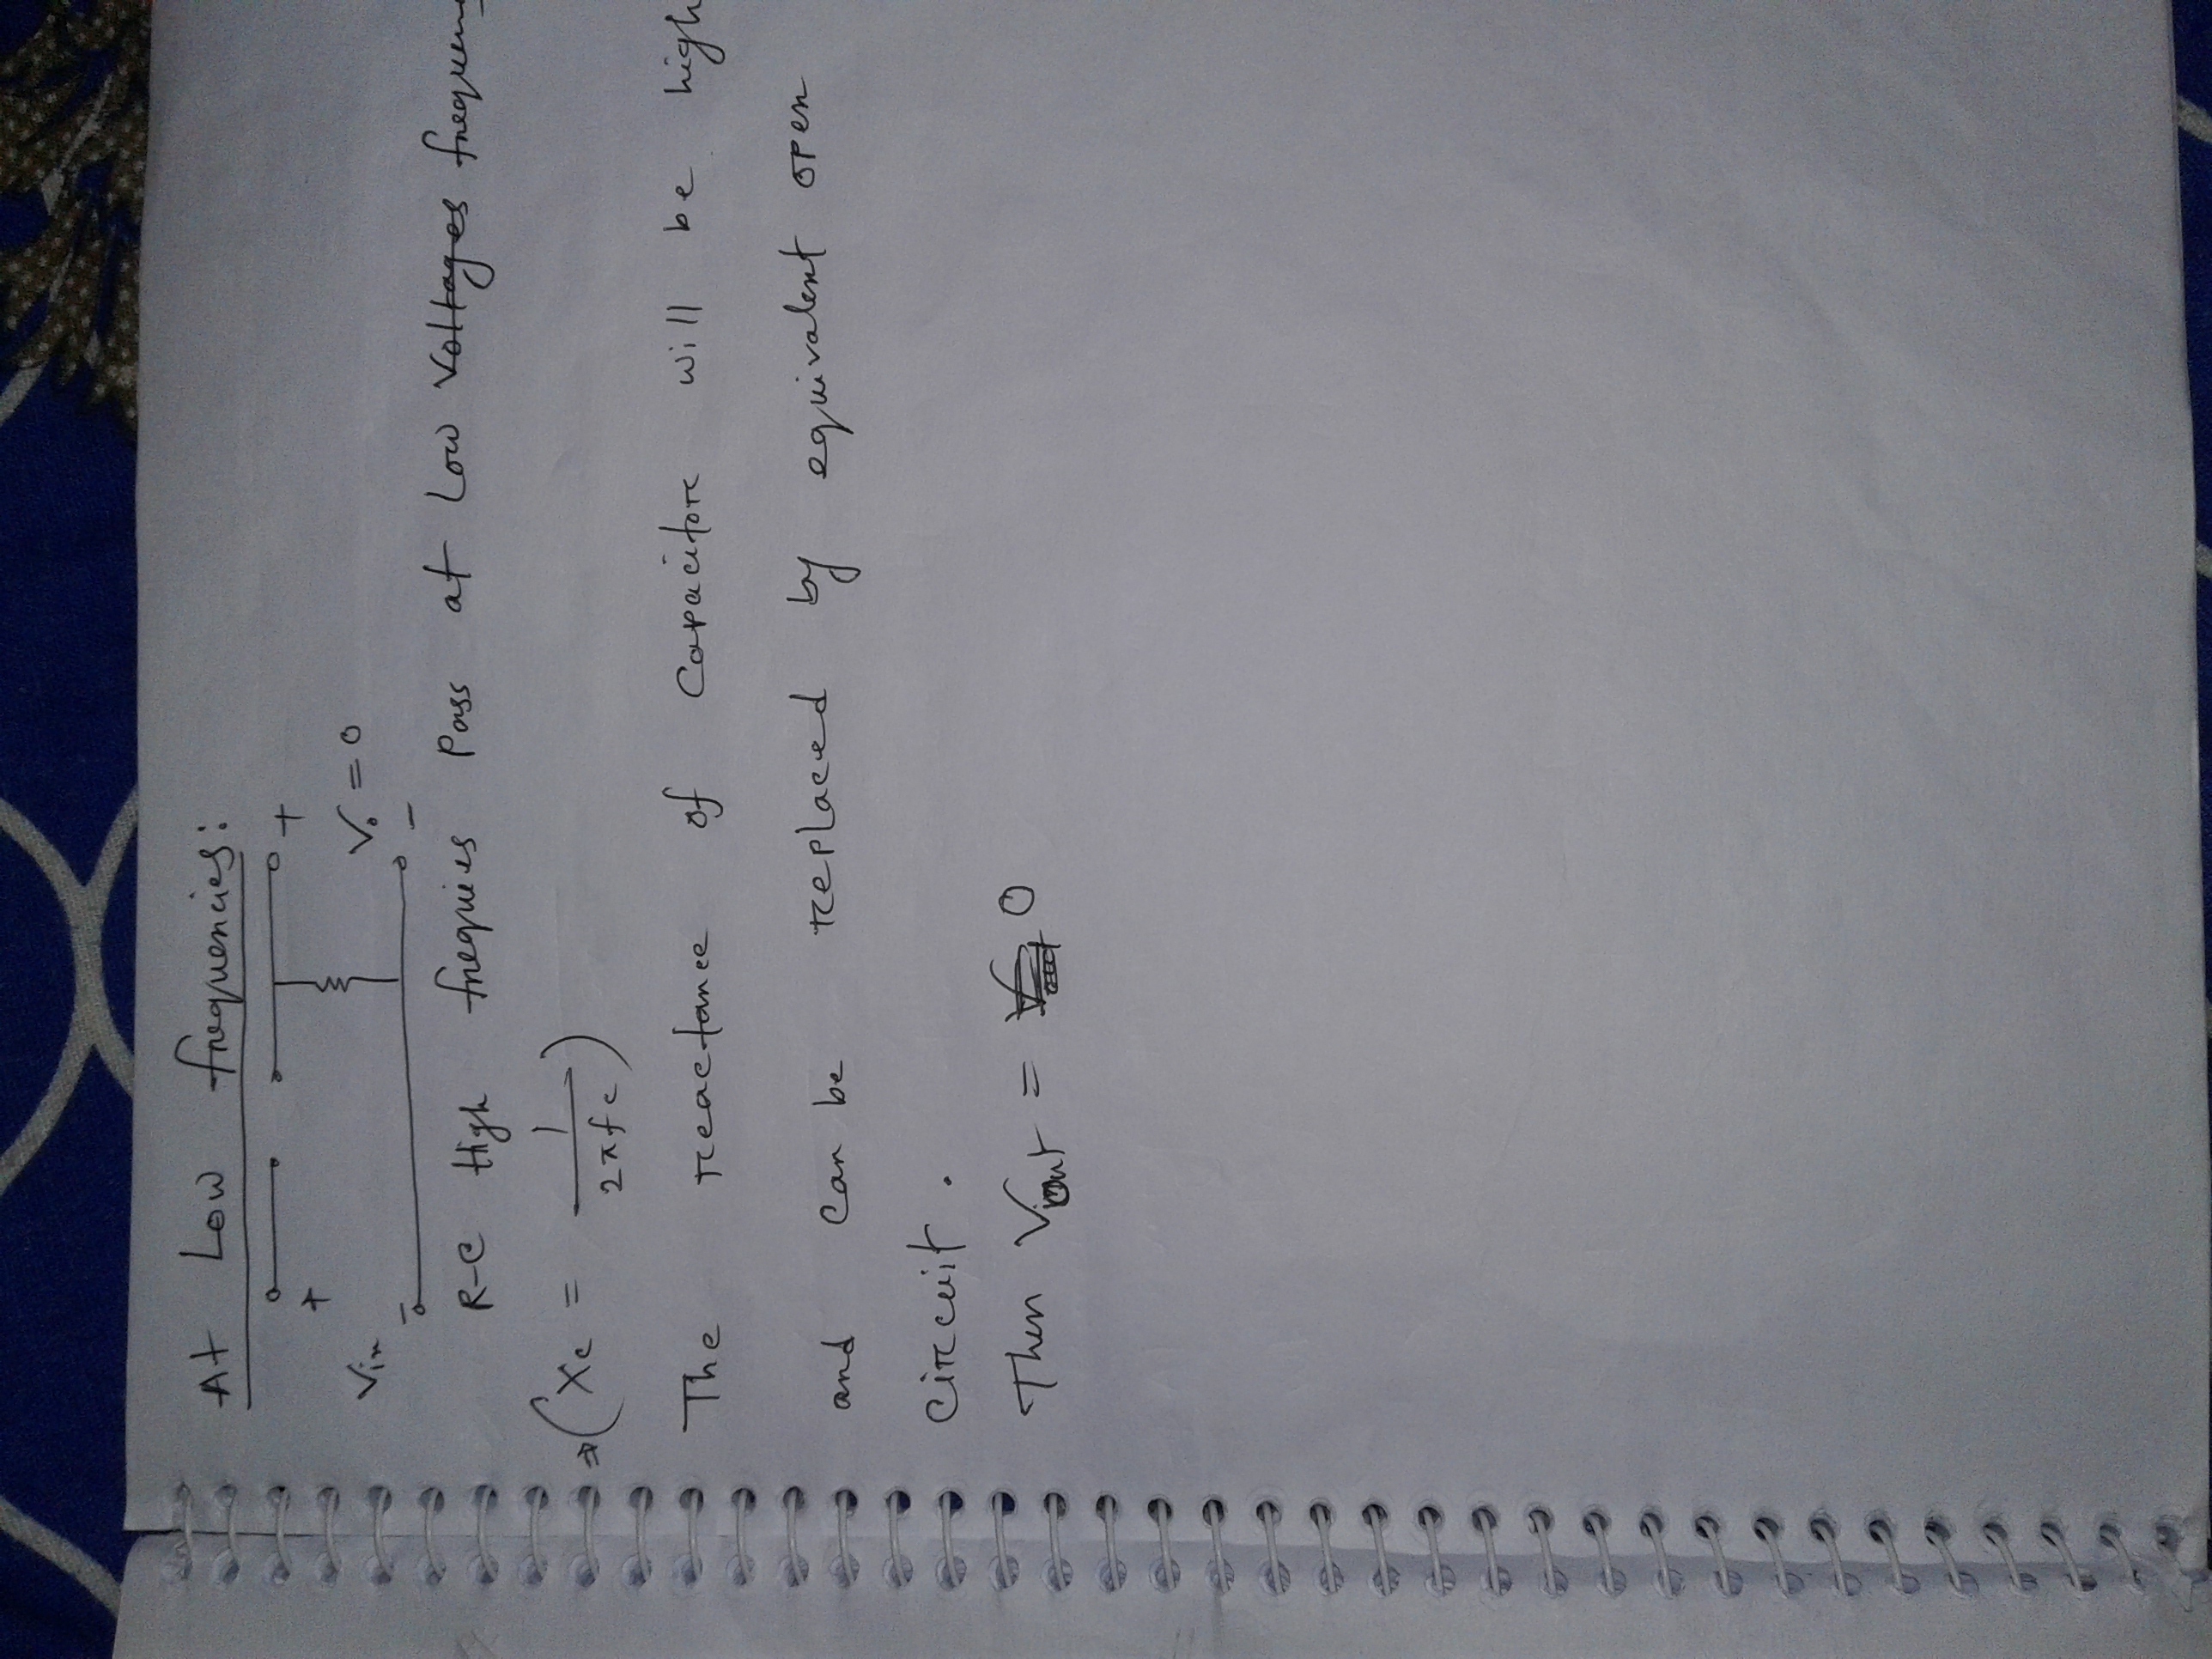 At Low frequencies:
+ +
Vin V₀ = 0
- -
R-C High frequies Pass at Low Voltages frequen
⇒ (Xc = 1/2πfc)
The reactance of Capacitor will be high
and can be replaced by equivalent open
circuit.
Then Vout = 0